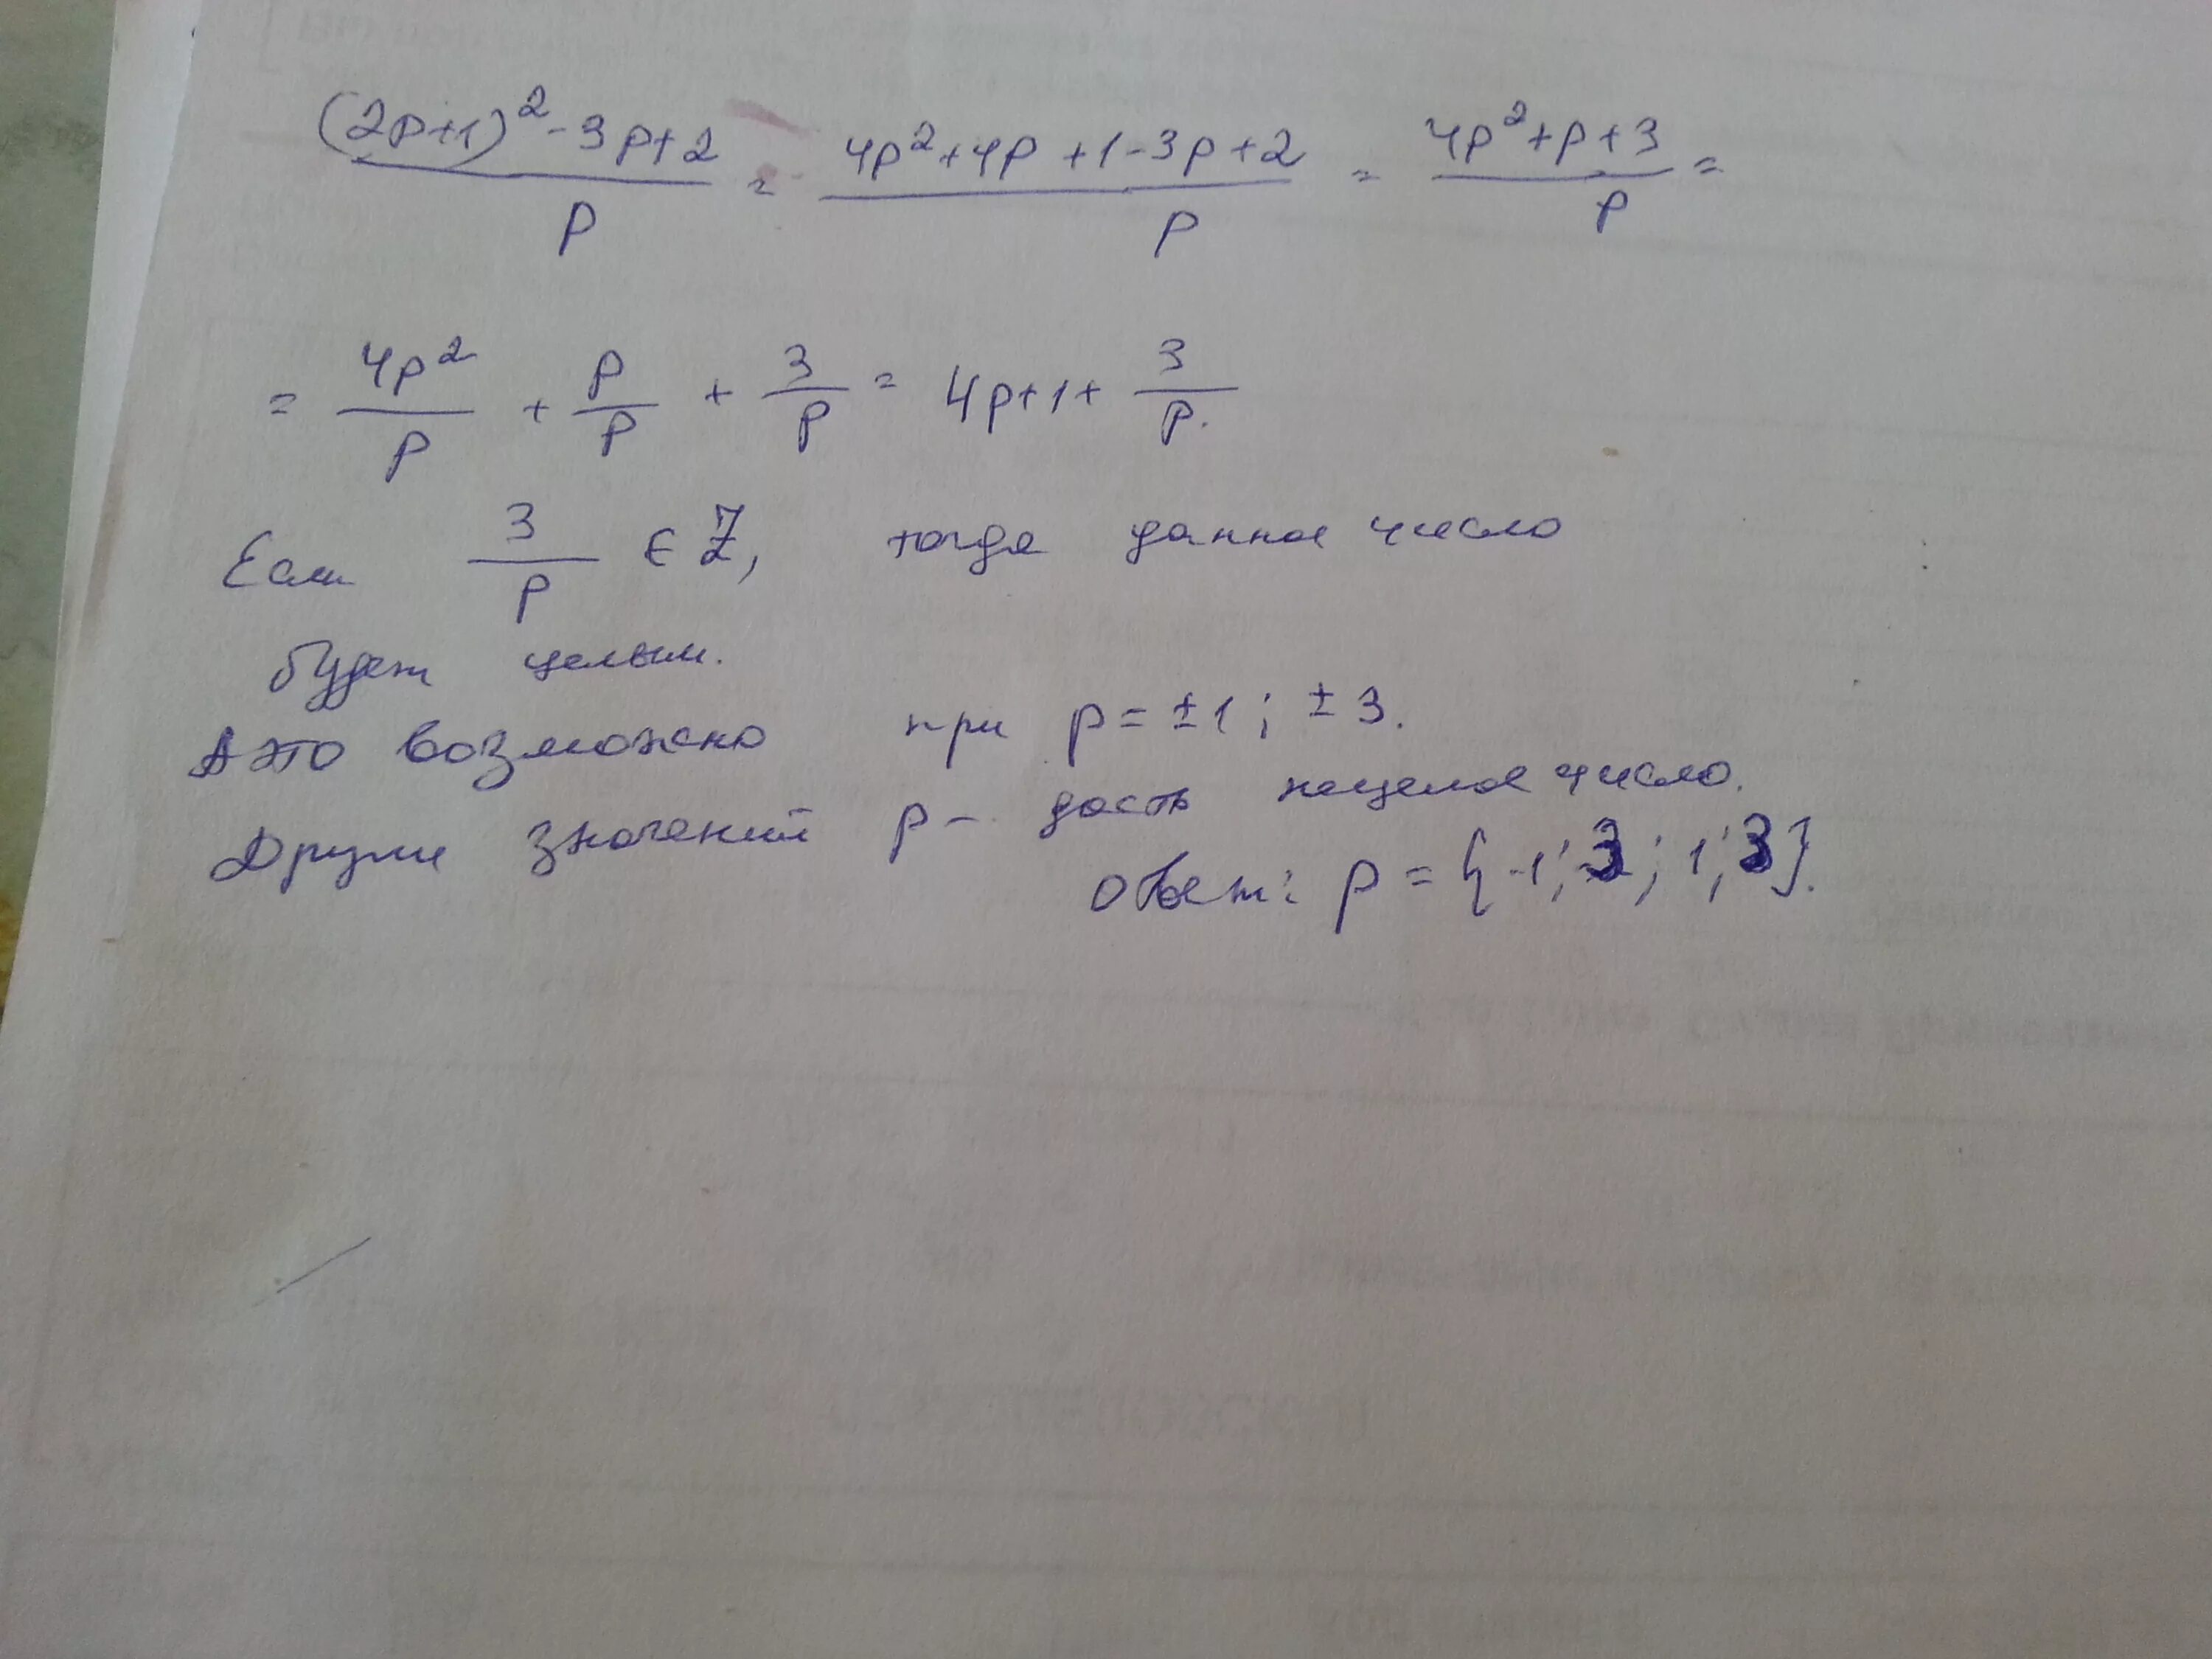 (2p+1)² - 3p+2 / p = 4p²+4p+1-3p+2 / p = 4p²+p+3 / p =
= 4p² / p + p / p + 3 / p = 4p+1+ 3 / p.
Если 3 / p ∈ Z, тогда данное число
будет целым.
А это возможно при p = ±1; ±3.
Други значений p - дасть нецелое число.
Ответ: p = {-1; 3; 1; 3}.